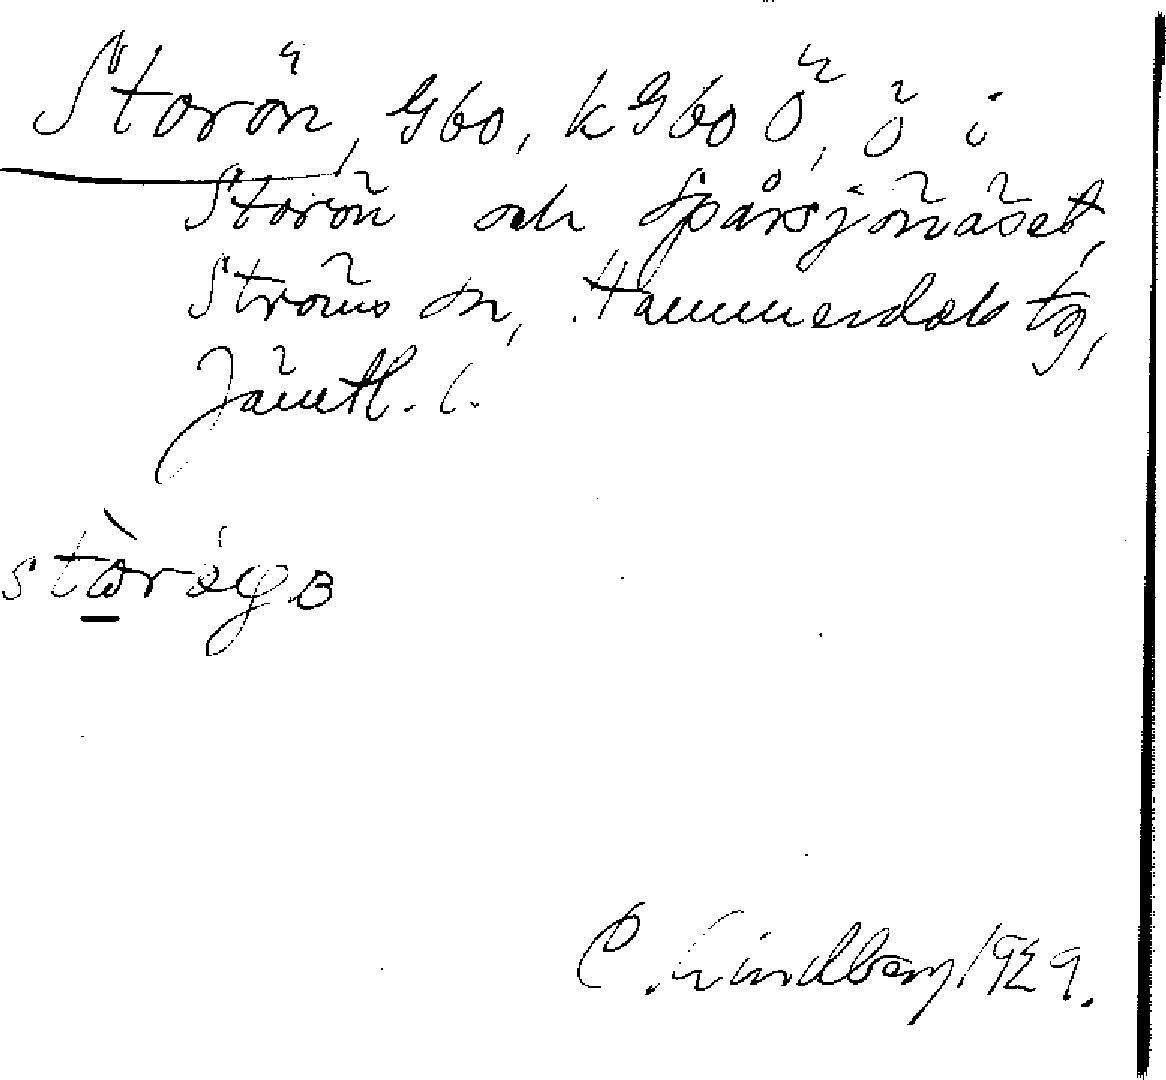 Storön, Gbo, k Gbo Ö, ö i
Storön och Spårsjönäset,
Ströms sn, Hammerdals tg,
Jämtl. l.
C. Lindberg 1929.